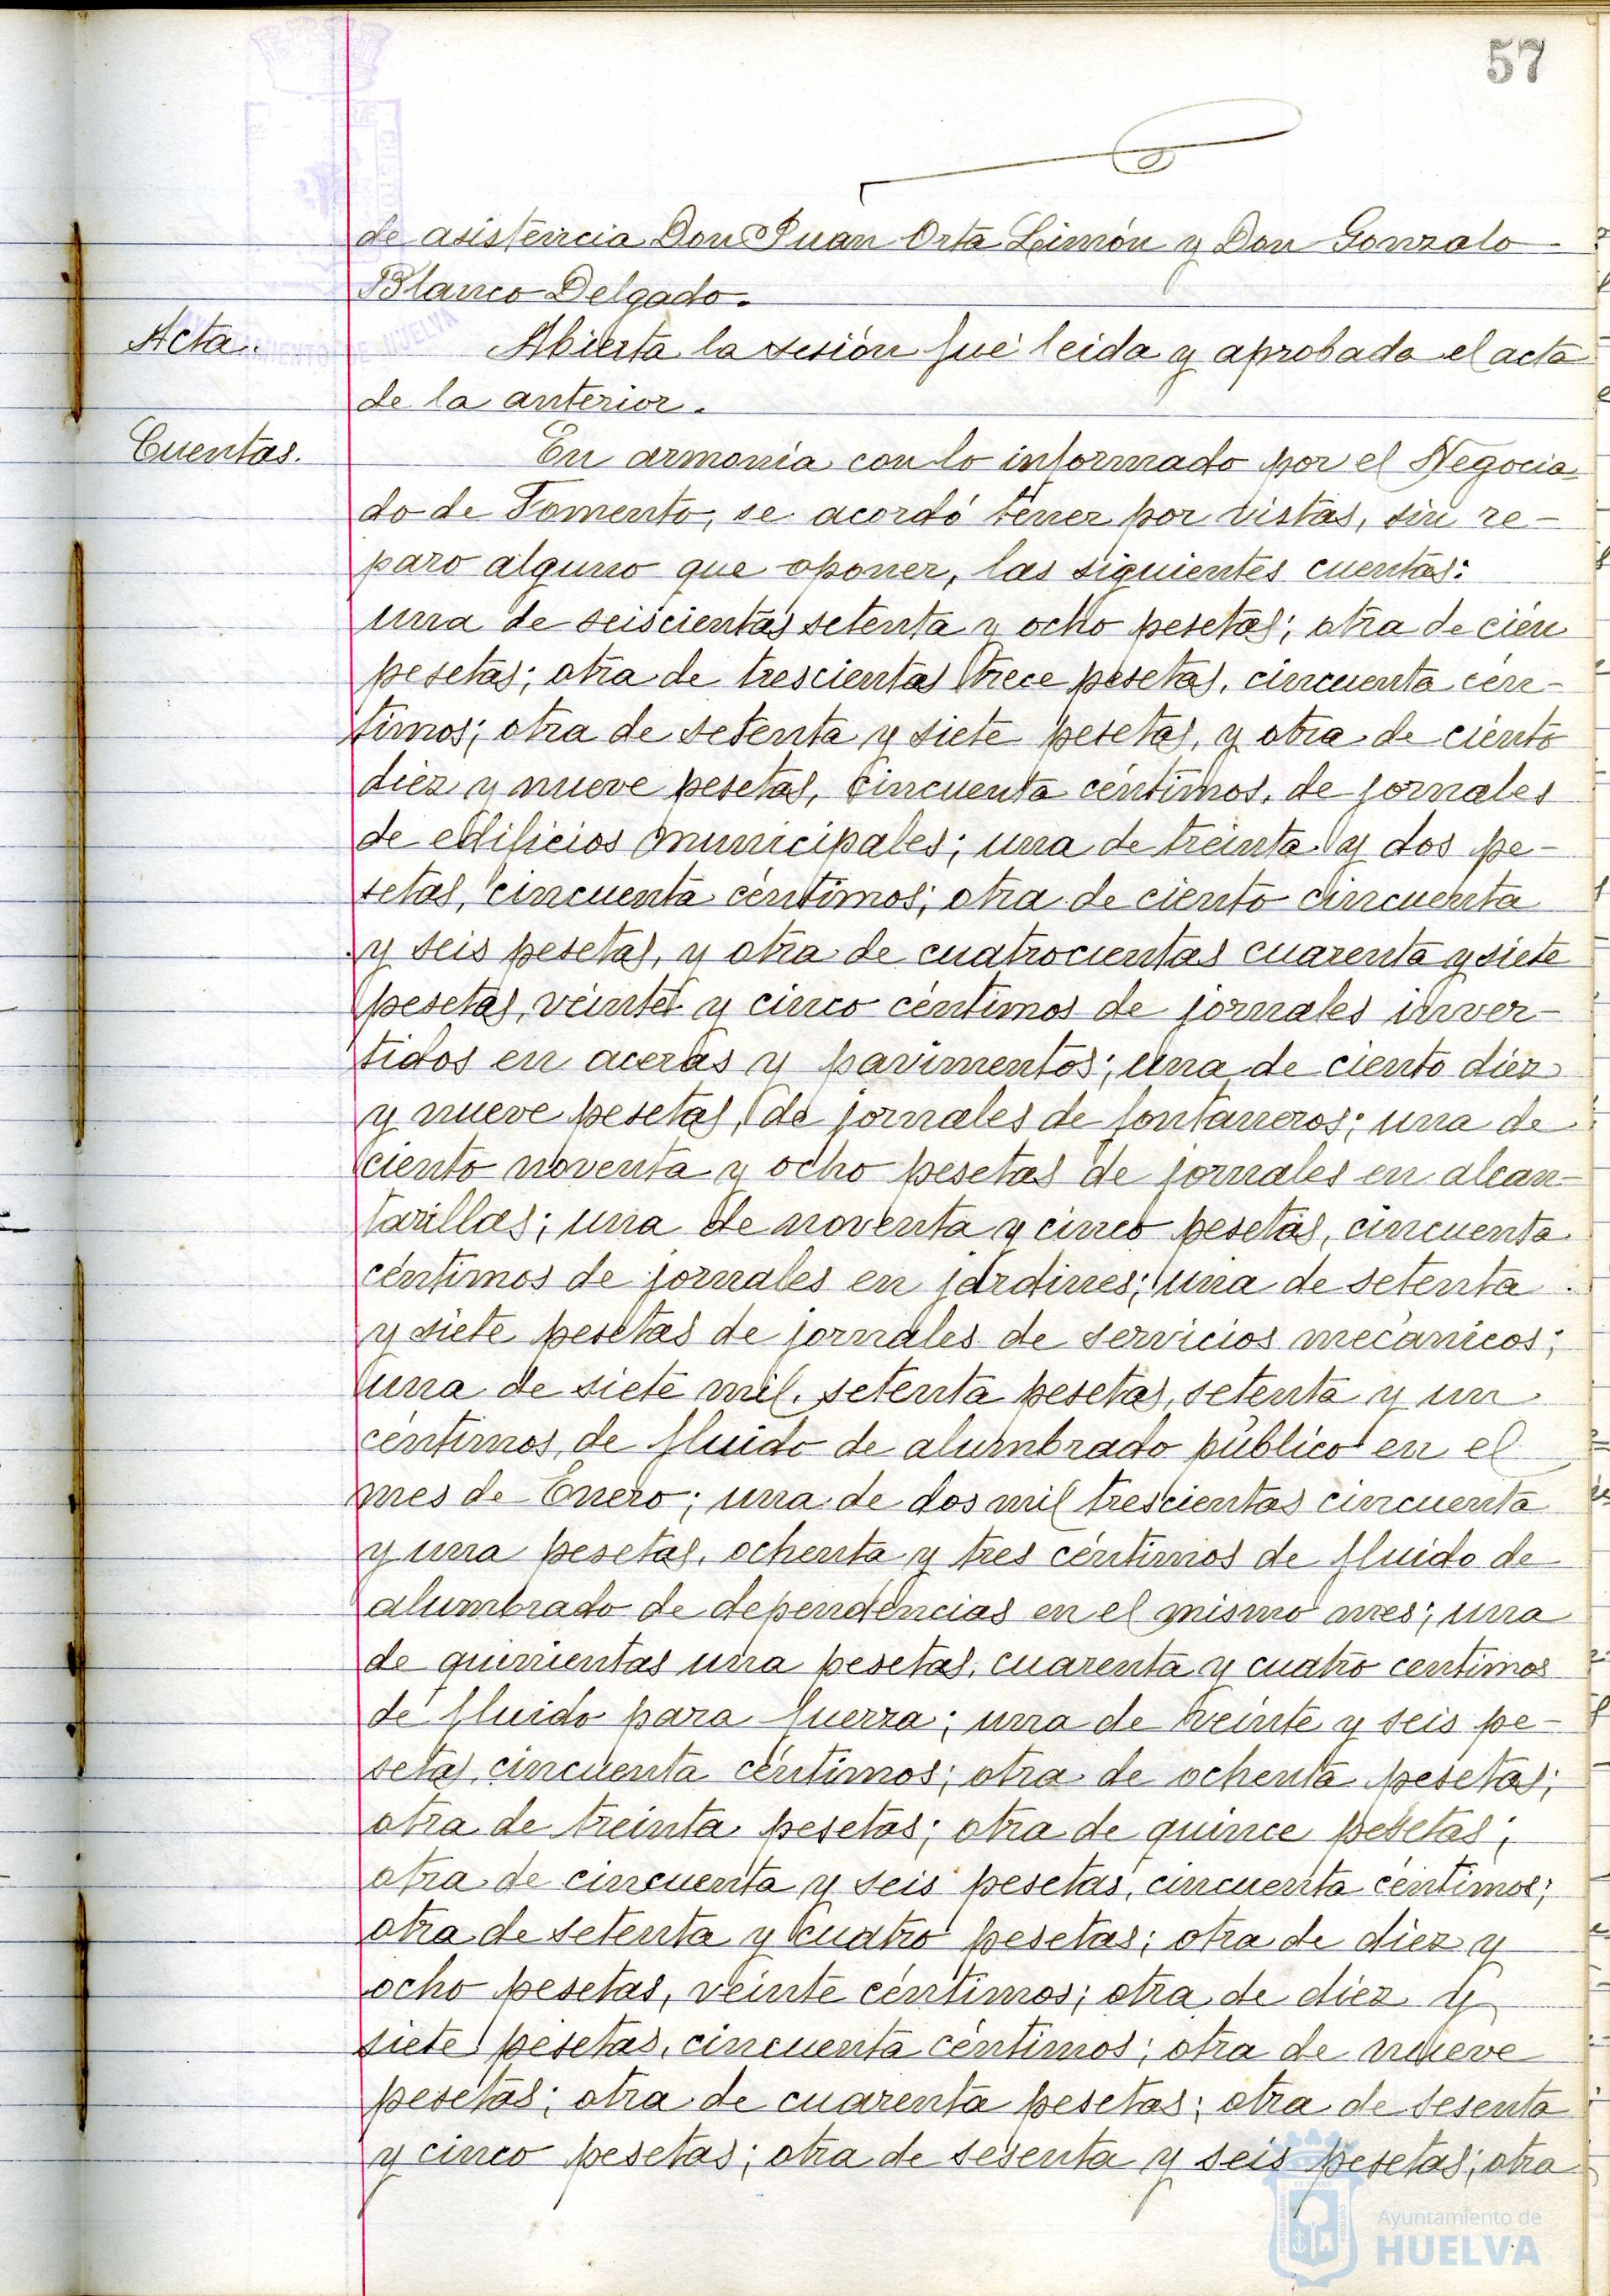 57
de asistencia Don Juan Orta Limón y Don Gonzalo
Blanco Delgado.
Acta.
Abierta la sesión fué leida y aprobada el acta
de la anterior.
Cuentas.
En armonía con lo informado por el Negocia-
do de Fomento, se acordó tener por vistas, sin re-
paro alguno que oponer, las siguientes cuentas:
una de seiscientas setenta y ocho pesetas; otra de cién
pesetas; otra de trescientas trece pesetas, cincuenta cén-
timos; otra de setenta y siete pesetas, y otra de ciento
diez y nueve pesetas, cincuenta céntimos, de jornales
de edificios municipales; una de treinta y dos pe-
setas, cincuenta céntimos; otra de ciento cincuenta
y seis pesetas, y otra de cuatrocientas cuarenta y siete
pesetas, veinte y cinco céntimos de jornales inver-
tidos en aceras y pavimentos; una de ciento diez
y nueve pesetas, de jornales de fontaneros; una de
ciento noventa y ocho pesetas de jornales en alcan-
tarillas; una de noventa y cinco pesetas, cincuenta
céntimos de jornales en jardines; una de setenta
y siete pesetas de jornales de servicios mecánicos;
una de siete mil, setenta pesetas, setenta y un
céntimos, de fluido de alumbrado público en el
mes de Enero; una de dos mil trescientas cincuenta
y una pesetas, ochenta y tres céntimos de fluido de
alumbrado de dependencias en el mismo mes; una
de quinientas una pesetas, cuarenta y cuatro centimos
de fluido para fuerza; una de veinte y seis pe-
setas, cincuenta céntimos; otra de ochenta pesetas;
otra de treinta pesetas; otra de quince pesetas;
otra de cincuenta y seis pesetas, cincuenta céntimos;
otra de setenta y cuatro pesetas; otra de diez y
ocho pesetas, veinte céntimos; otra de diez y
siete pesetas, cincuenta céntimos; otra de nueve
pesetas; otra de cuarenta pesetas; otra de sesenta
y cinco pesetas; otra de sesenta y seis pesetas; otra
Ayuntamiento de
HUELVA